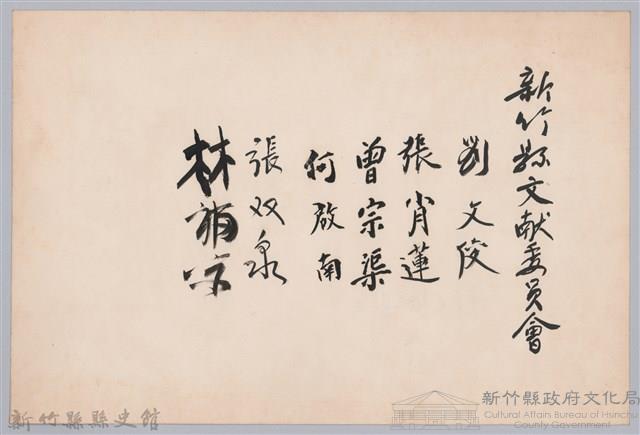 新竹縣文献委員會
劉文俊
張肖蓮
曾宗渠
何啟南
張双泉
林
新竹縣縣史館
新竹縣政府文化局
Cultural Affairs Bureau of Hsinchu
County Government